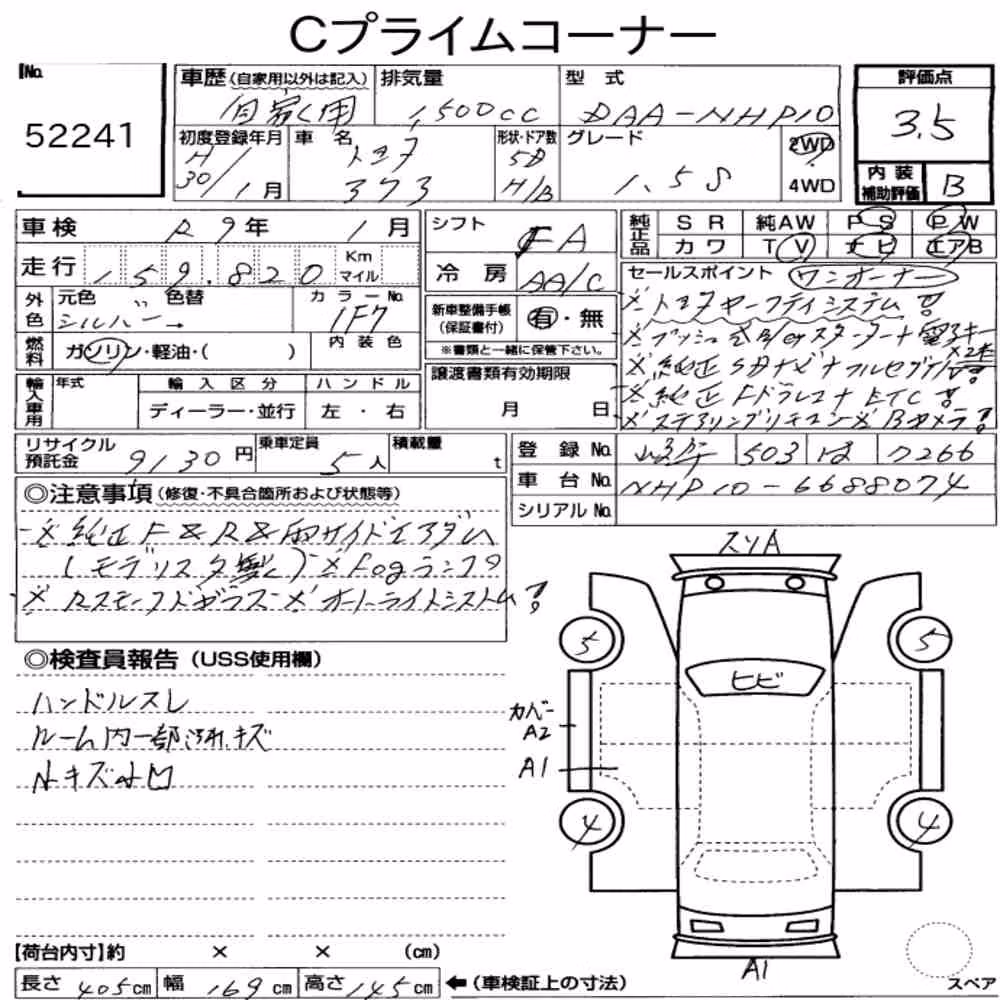 Cプライムコーナー
No.
52241
車歴(自家用以外は記入)
自家用
排気量
1,500cc
型式
DAA-NHP10
評価点
3.5
内装補助評価
B
初度登録年月
H30/1月
車名
トヨタ
373
形状・ドア数
5D
H/B
グレード
1.5S
2WD
4WD
車検
R9年 1月
走行
159.820
Km
マイル
シフト
FA
冷房
AA/C
純正品
SR 純AW PS PW
カワ TV ナビ エアB
外色
元色 〃 色替
シルバー→
カラーNo.
1F7
内装色
燃料
ガソリン・軽油・( )
新車整備手帳(保証書付)
有・無
※書類と一緒に保管下さい。
セールスポイント ワンオーナー
※トヨタセーフティシステム!
※プッシュ式E/gスターター+電子キー×2本
※純正SDナビ+フルセグTV!
※純正Fドラレコ+ETC!
※ステアリングリモコン※Bカメラ!
輸入車用
年式
輸入区分
ディーラー・並行
ハンドル
左・右
譲渡書類有効期限
月 日
リサイクル預託金
9130円
乗車定員
5人
積載量
t
登録No.
503
は
7266
車台No.
NHP10-6688074
シリアルNo.
◎注意事項(修復・不具合箇所および状態等)
※純正F&R&両サイドエアダム
(モデリスタ製)※Fogランプ
※Rスモークドガラス※オートライトシステム!
◎検査員報告(USS使用欄)
ハンドルスレ
ルーム内一部汚れ、キズ
小キズ小凹
スソA
5
5
ヒビ
カバーA2
A1
4
4
A1
スペア
【荷台内寸】約 × × (cm)
長さ 405cm 幅 169cm 高さ 145cm ←(車検証上の寸法)